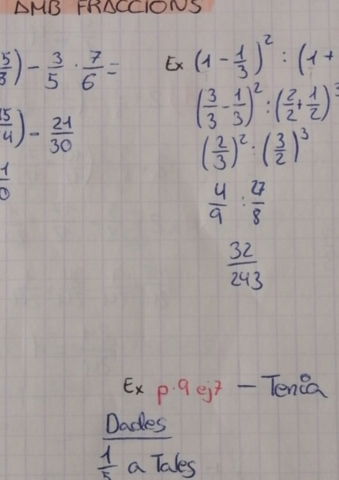 AMB FRACCIONS
5/3) - 3/5 · 7/6 =
15/4) - 21/30
1/0
Ex (1 - 1/3)² : (1 +
(3/3 - 1/3)² : (2/2 + 1/2)³
(2/3)² : (3/2)³
4/9 : 27/8
32/243
Ex p.9 ej7 — Tenia
Dades
1/5 a Tales